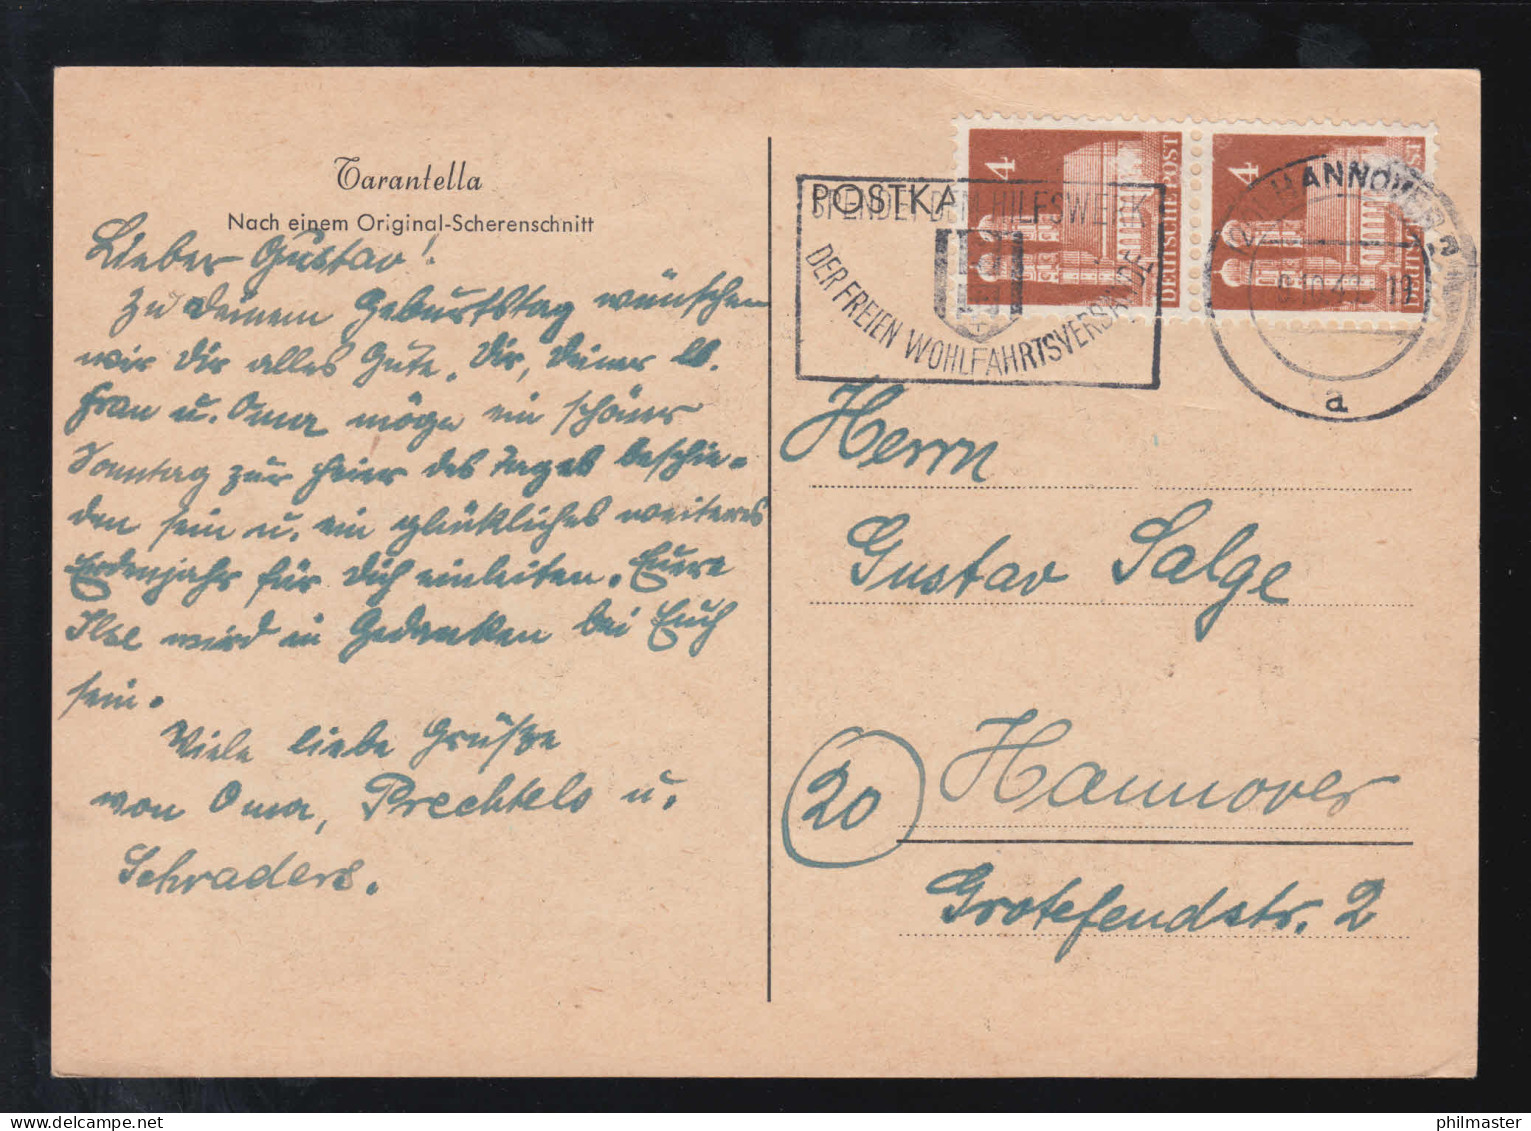 Tarantella
Nach einem Original-Scherenschnitt
Lieber Gustav!
Zu Deinem Geburtstag wünschen
wir Dir alles Gute. Dir, Deiner lb.
Frau u. Oma möge ein schöner
Sonntag zur Feier des Tages beschie-
den sein u. ein glückliches weiteres
Erdenjahr für Dich einleiten. Eure
Ilse wird in Gedanken bei Euch
sein.
Viele liebe Grüße
von Oma, Prechtels u.
Schraders.
POSTKA
SPENDET DEM HILFSWERK
DER FREIEN WOHLFAHRTSVERBÄNDE
4
DEUTSCHE POST
4
HANNOVER
a
Herrn
Gustav Salge
20 Hannover
Grotefendstr. 2
philmaster